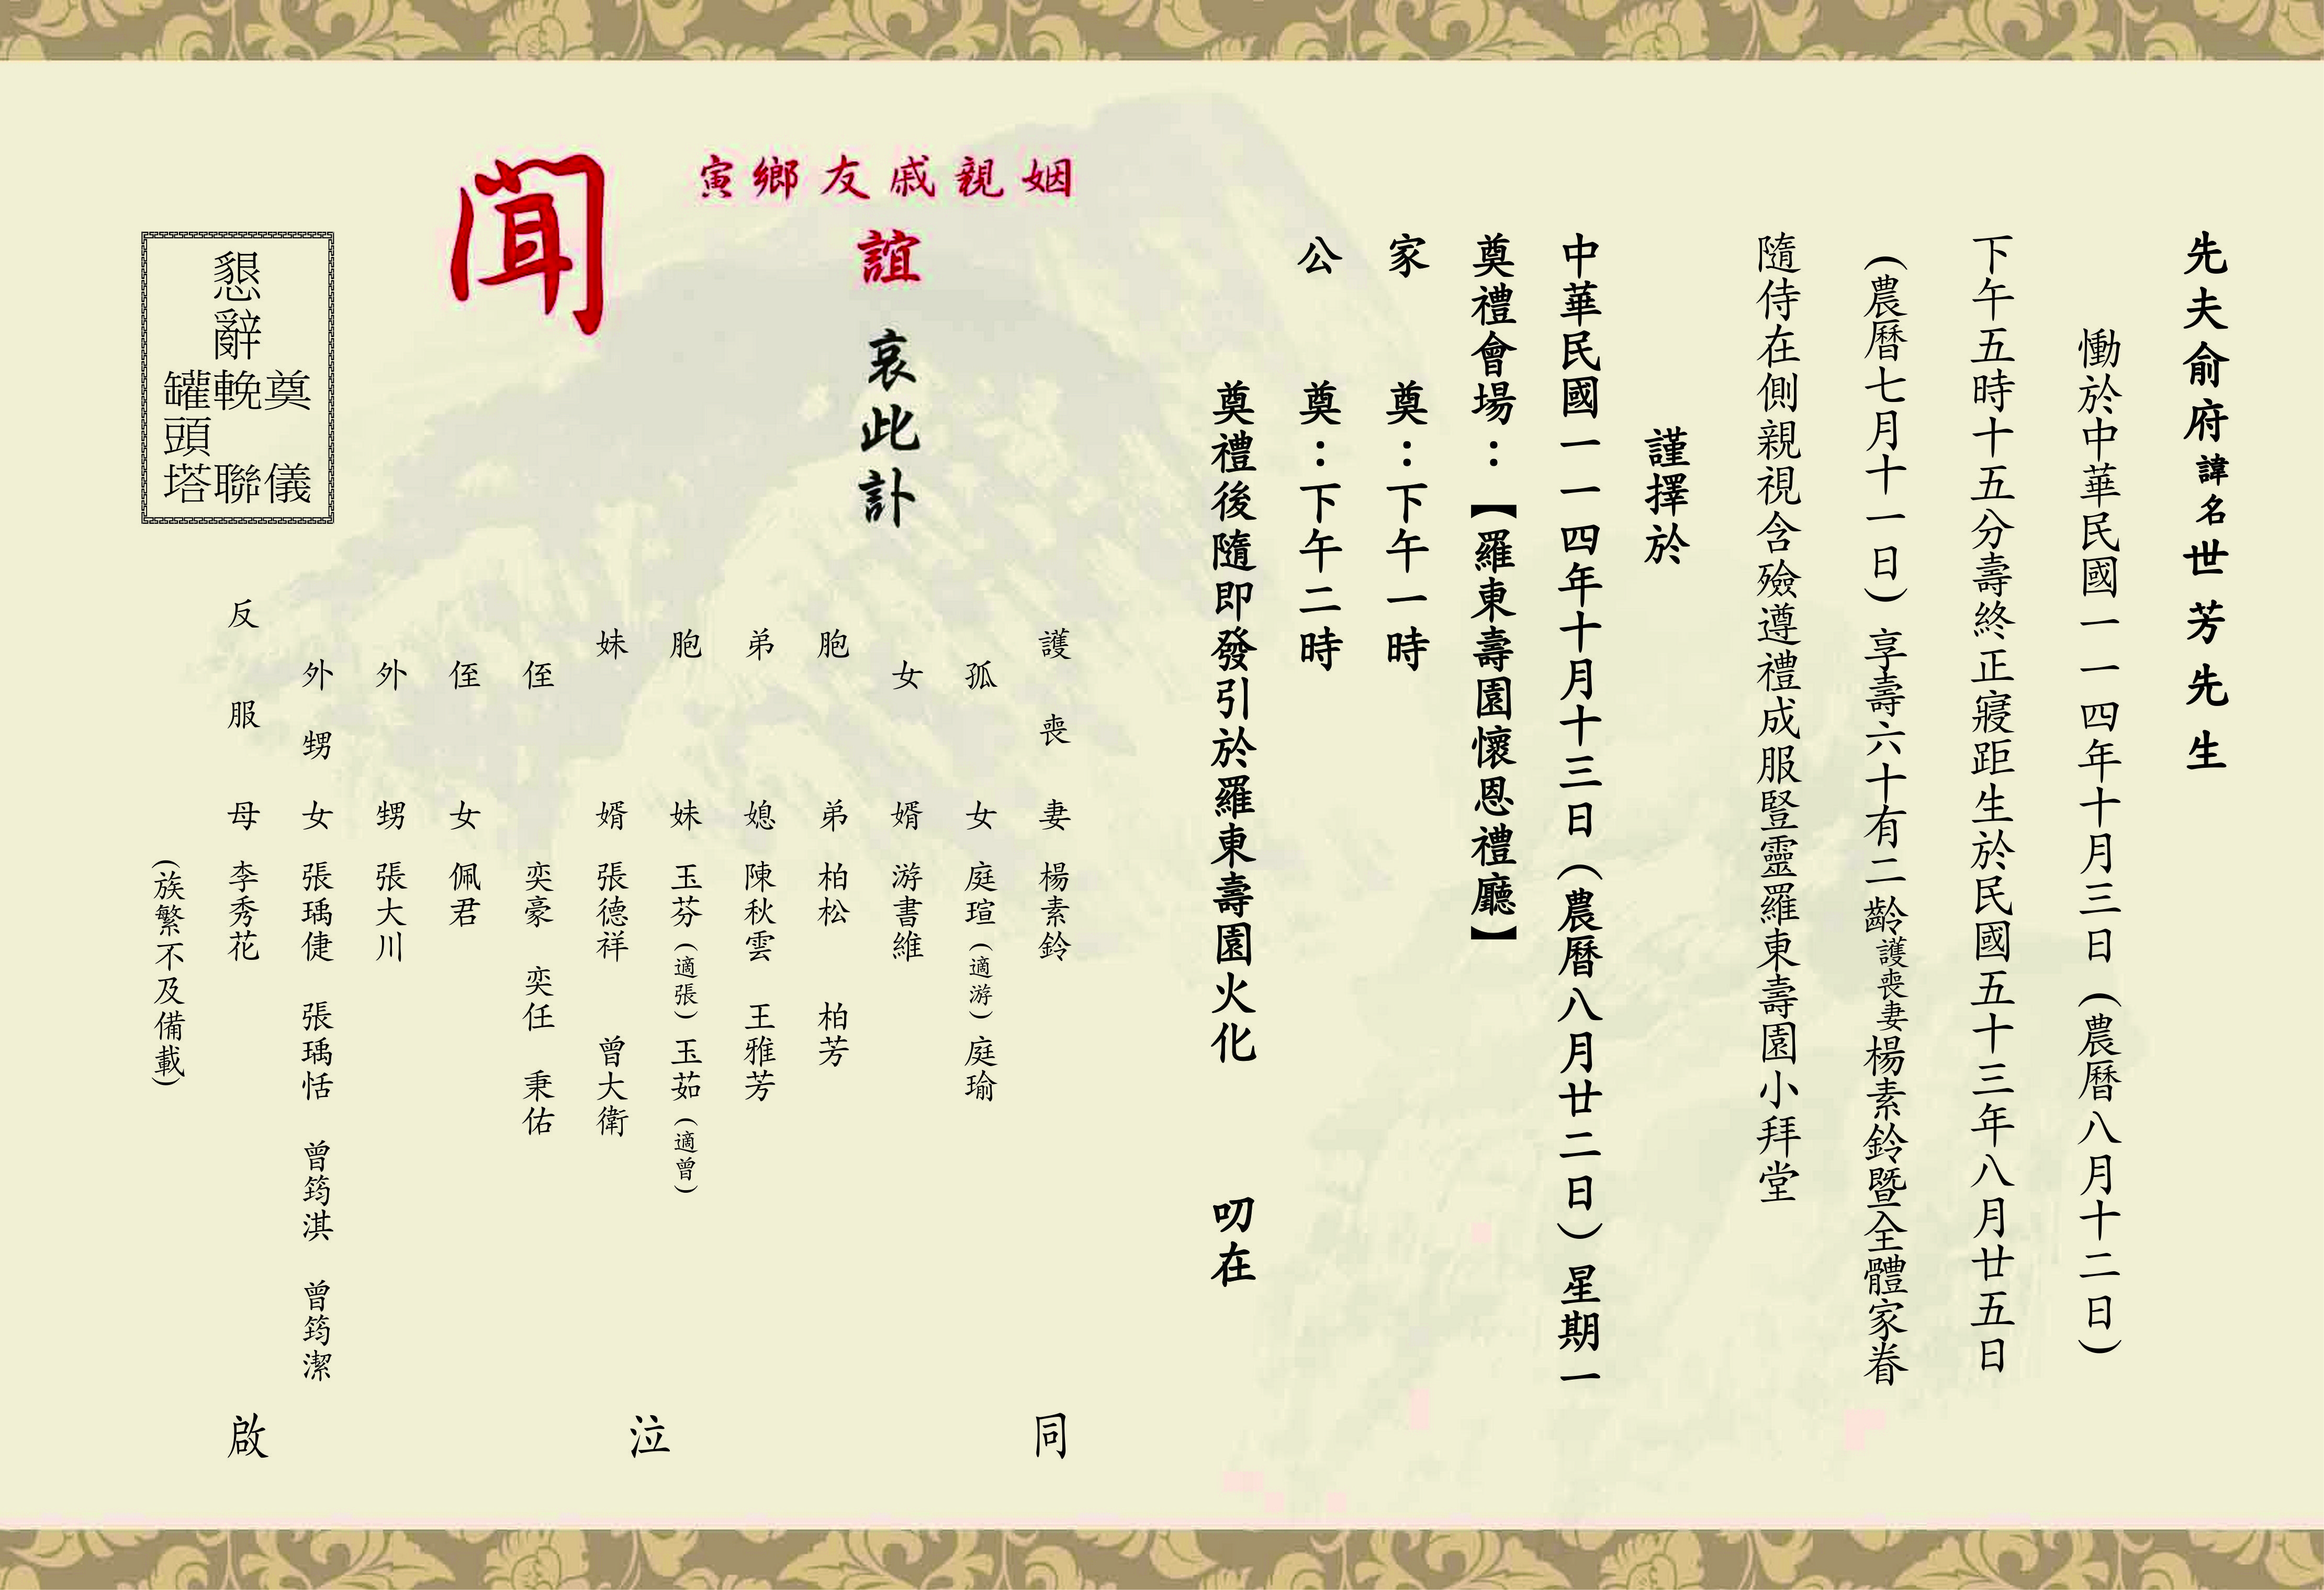 先夫俞府諱名世芳先生
慟於中華民國一一四年十月三日（農曆八月十二日）
下午五時十五分壽終正寢距生於民國五十三年八月廿五日
（農曆七月十一日）享壽六十有二齡護喪妻楊素鈴暨全體家眷
隨侍在側親視含殮遵禮成服豎靈羅東壽園小拜堂
謹擇於
中華民國一一四年十月十三日（農曆八月廿二日）星期一
奠禮會場：【羅東壽園懷恩禮廳】
家奠：下午一時
公奠：下午二時
奠禮後隨即發引於羅東壽園火化 叨在
姻親戚友鄉寅
誼 哀此訃
聞
護喪妻 楊素鈴
孤女 庭瑄（適游）庭瑜
女婿 游書維
胞弟 柏松 柏芳
弟媳 陳秋雲 王雅芳
胞妹 玉芬（適張）玉茹（適曾）
妹婿 張德祥 曾大衛
侄 奕豪 奕任 秉佑
侄女 佩君
外甥 張大川
外甥女 張瑀倢 張瑀恬 曾筠淇 曾筠潔
反服母 李秀花
（族繁不及備載）
同泣啟
懇辭
奠儀
輓聯
罐頭塔